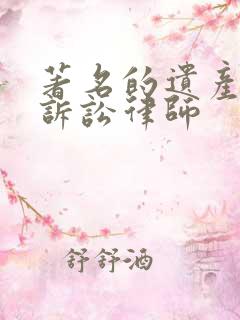 著名的遺產
訴訟律師
舒舒酒